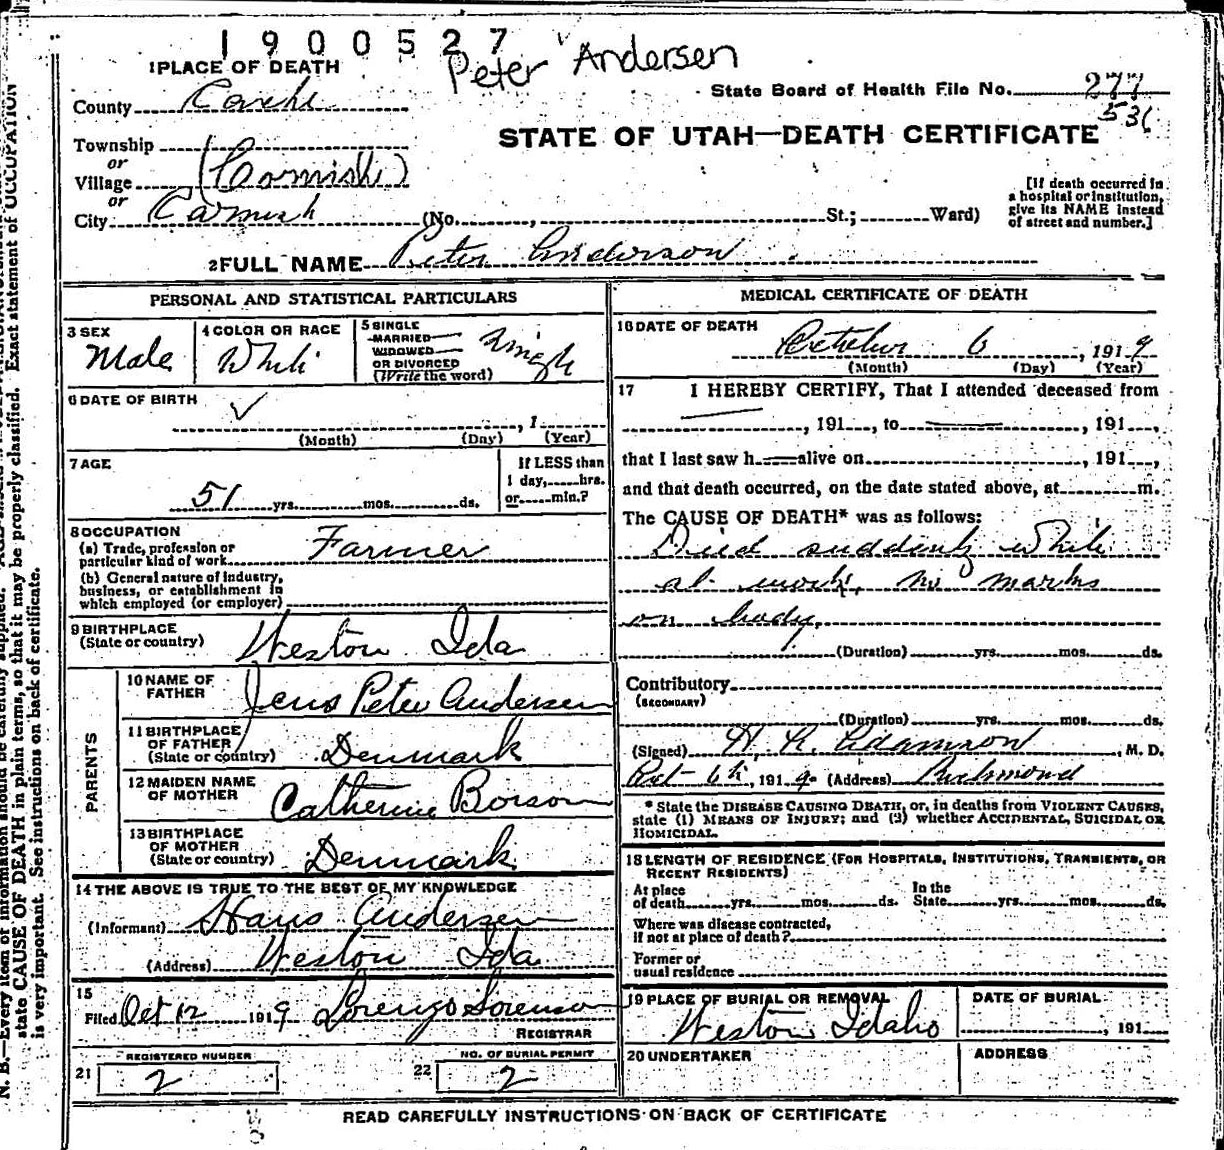 1900527
Peter Andersen
1 PLACE OF DEATH
County Cache
State Board of Health File No. 277
536
STATE OF UTAH—DEATH CERTIFICATE
Township
or
Village (Cornish)
or
City Cornish (No. , St.; Ward)
[If death occurred in
a hospital or institution,
give its NAME instead
of street and number.]
2 FULL NAME Peter Anderson
PERSONAL AND STATISTICAL PARTICULARS
3 SEX
Male
4 COLOR OR RACE
White
5 SINGLE
MARRIED
WIDOWED
OR DIVORCED
(Write the word)
Single
6 DATE OF BIRTH
, 1
(Month) (Day) (Year)
7 AGE
51 yrs. mos. ds.
If LESS than
1 day, hrs.
or min.?
8 OCCUPATION
(a) Trade, profession or
particular kind of work Farmer
(b) General nature of industry,
business, or establishment in
which employed (or employer)
9 BIRTHPLACE
(State or country) Weston Ida
PARENTS
10 NAME OF
FATHER Jens Peter Andersen
11 BIRTHPLACE
OF FATHER
(State or country) Denmark
12 MAIDEN NAME
OF MOTHER Catherine Borson
13 BIRTHPLACE
OF MOTHER
(State or country) Denmark
14 THE ABOVE IS TRUE TO THE BEST OF MY KNOWLEDGE
(Informant) Hans Andersen
(Address) Weston Ida
15
Filed Oct 12 1919 Lorenzo Sorenson
REGISTRAR
REGISTERED NUMBER
21 2
NO. OF BURIAL PERMIT
22 2
MEDICAL CERTIFICATE OF DEATH
16 DATE OF DEATH
October 6, 1919
(Month) (Day) (Year)
17 I HEREBY CERTIFY, That I attended deceased from
, 191 , to , 191 ,
that I last saw h alive on , 191 ,
and that death occurred, on the date stated above, at m.
The CAUSE OF DEATH* was as follows:
Died suddenly while
at work, no marks
on body.
(Duration) yrs. mos. ds.
Contributory
(SECONDARY)
(Duration) yrs. mos. ds.
(Signed) Adamson, M. D.
Oct 6th, 1919 (Address) Richmond
* State the DISEASE CAUSING DEATH, or, in deaths from VIOLENT CAUSES,
state (1) MEANS OF INJURY; and (2) whether ACCIDENTAL, SUICIDAL OR
HOMICIDAL.
18 LENGTH OF RESIDENCE (FOR HOSPITALS, INSTITUTIONS, TRANSIENTS, OR
RECENT RESIDENTS)
At place
of death yrs. mos. ds.
In the
State yrs. mos. ds.
Where was disease contracted,
if not at place of death?
Former or
usual residence
19 PLACE OF BURIAL OR REMOVAL
Weston Idaho
DATE OF BURIAL
, 191
20 UNDERTAKER
ADDRESS
READ CAREFULLY INSTRUCTIONS ON BACK OF CERTIFICATE
N. B.—Every item of information should be carefully supplied.
state CAUSE OF DEATH in plain terms, so that it may be properly classified. Exact statement of OCCUPATION
is very important. See instructions on back of certificate.